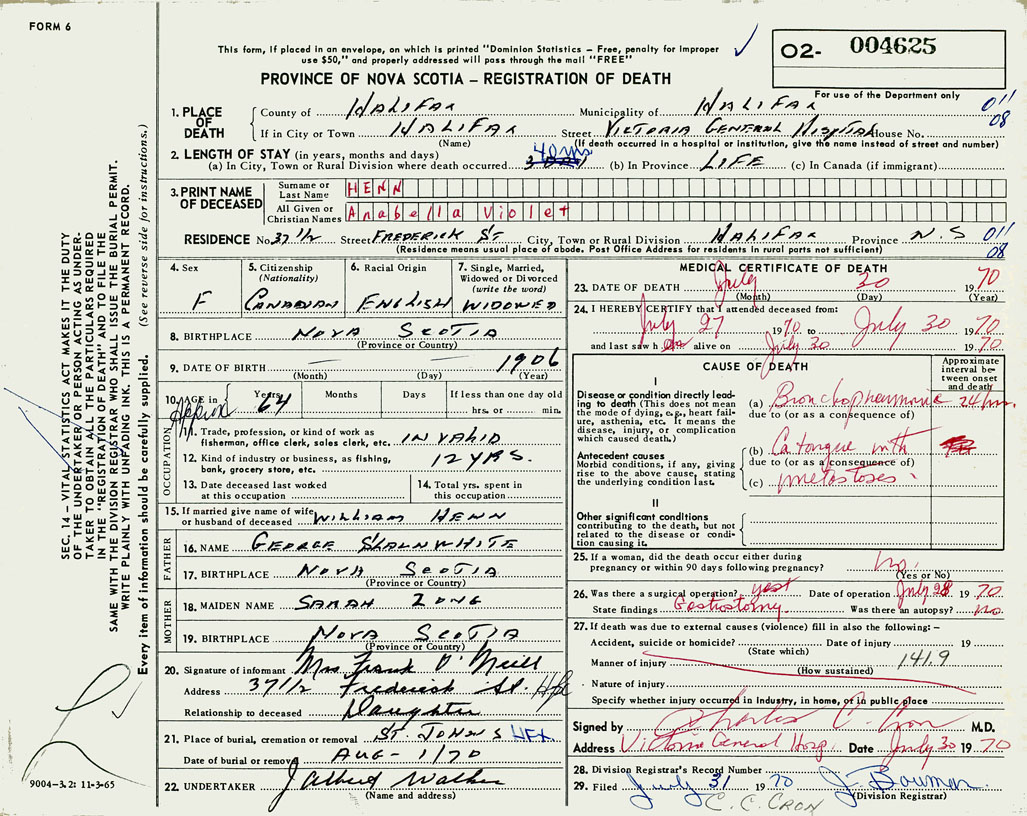 FORM 6
This form, if placed in an envelope, on which is printed "Dominion Statistics – Free, penalty for improper
use $50," and properly addressed will pass through the mail "FREE"
PROVINCE OF NOVA SCOTIA – REGISTRATION OF DEATH
02- 004625
For use of the Department only
1. PLACE OF DEATH
County of HALIFAX Municipality of HALIFAX 011
If in City or Town HALIFAX Street VICTORIA GENERAL Hospital House No. 08
(Name) (If death occurred in a hospital or institution, give the name instead of street and number)
2. LENGTH OF STAY (in years, months and days)
(a) In City, Town or Rural Division where death occurred 40 yrs (b) In Province LIFE (c) In Canada (if immigrant)
3. PRINT NAME OF DECEASED
Surname or Last Name HENN
All Given or Christian Names Anabella Violet
RESIDENCE No. 37 1/2 Street FREDERICK ST City, Town or Rural Division HALIFAX Province N.S 011
(Residence means usual place of abode. Post Office Address for residents in rural parts not sufficient) 08
4. Sex F
5. Citizenship (Nationality) CANADIAN
6. Racial Origin ENGLISH
7. Single, Married, Widowed or Divorced (write the word) WIDOWED
8. BIRTHPLACE NOVA SCOTIA
(Province or Country)
9. DATE OF BIRTH — — 1906
(Month) (Day) (Year)
10. AGE in Approx Years 64 Months Days If less than one day old
hrs. or min.
OCCUPATION
11. Trade, profession, or kind of work as
fisherman, office clerk, sales clerk, etc. INVALID
12. Kind of industry or business, as fishing,
bank, grocery store, etc. 12 YRS.
13. Date deceased last worked
at this occupation
14. Total yrs. spent in
this occupation
15. If married give name of wife
or husband of deceased WILLIAM HENN
FATHER
16. NAME GEORGE SHAUNWHITE
17. BIRTHPLACE NOVA SCOTIA
(Province or Country)
MOTHER
18. MAIDEN NAME SARAH LONG
19. BIRTHPLACE NOVA SCOTIA
(Province or Country)
20. Signature of informant Mrs Frank O'Neill
Address 37 1/2 Frederick St. Hfx
Relationship to deceased Daughter
21. Place of burial, cremation or removal ST. JOHNS HFX
Date of burial or removal AUG - 1/70
22. UNDERTAKER J Albert Walker
(Name and address)
MEDICAL CERTIFICATE OF DEATH
23. DATE OF DEATH July 30 70
(Month) (Day) (Year)
24. I HEREBY CERTIFY that I attended deceased from:
July 27 1970 to July 30 1970
and last saw her alive on July 30 1970
CAUSE OF DEATH
Approximate interval between onset and death
I
Disease or condition directly leading to death (This does not mean the mode of dying, e.g., heart failure, asthenia, etc. It means the disease, injury, or complication which caused death.)
(a) Bronchopneumonia 24 hrs.
due to (or as a consequence of)
Antecedent causes
Morbid conditions, if any, giving rise to the above cause, stating the underlying condition last.
(b) Ca tongue with
due to (or as a consequence of)
(c) metastoses.
II
Other significant conditions
contributing to the death, but not
related to the disease or condition causing it.
25. If a woman, did the death occur either during
pregnancy or within 90 days following pregnancy? no.
(Yes or No)
26. Was there a surgical operation? yes Date of operation July 28 1970
State findings Gastrostomy. Was there an autopsy? no.
27. If death was due to external causes (violence) fill in also the following:—
Accident, suicide or homicide? Date of injury 19
(State which)
Manner of injury 141.9
(How sustained)
Nature of injury
Specify whether injury occurred in Industry, in home, or in public place
Signed by Charles C. Cron M.D.
Address Victoria General Hosp. Date July 30 1970
28. Division Registrar's Record Number
29. Filed July 31 1970 J. Bowman
C. C. CRON (Division Registrar)
SEC. 14 – VITAL STATISTICS ACT MAKES IT THE DUTY
OF THE UNDERTAKER OR PERSON ACTING AS UNDER-
TAKER TO OBTAIN ALL THE PARTICULARS REQUIRED
IN THE "REGISTRATION OF DEATH" AND TO FILE THE
SAME WITH THE DIVISION REGISTRAR WHO SHALL ISSUE THE BURIAL PERMIT.
WRITE PLAINLY WITH UNFADING INK. THIS IS A PERMANENT RECORD.
Every item of information should be carefully supplied. (See reverse side for instructions.)
9004-3.2: 11-3-65